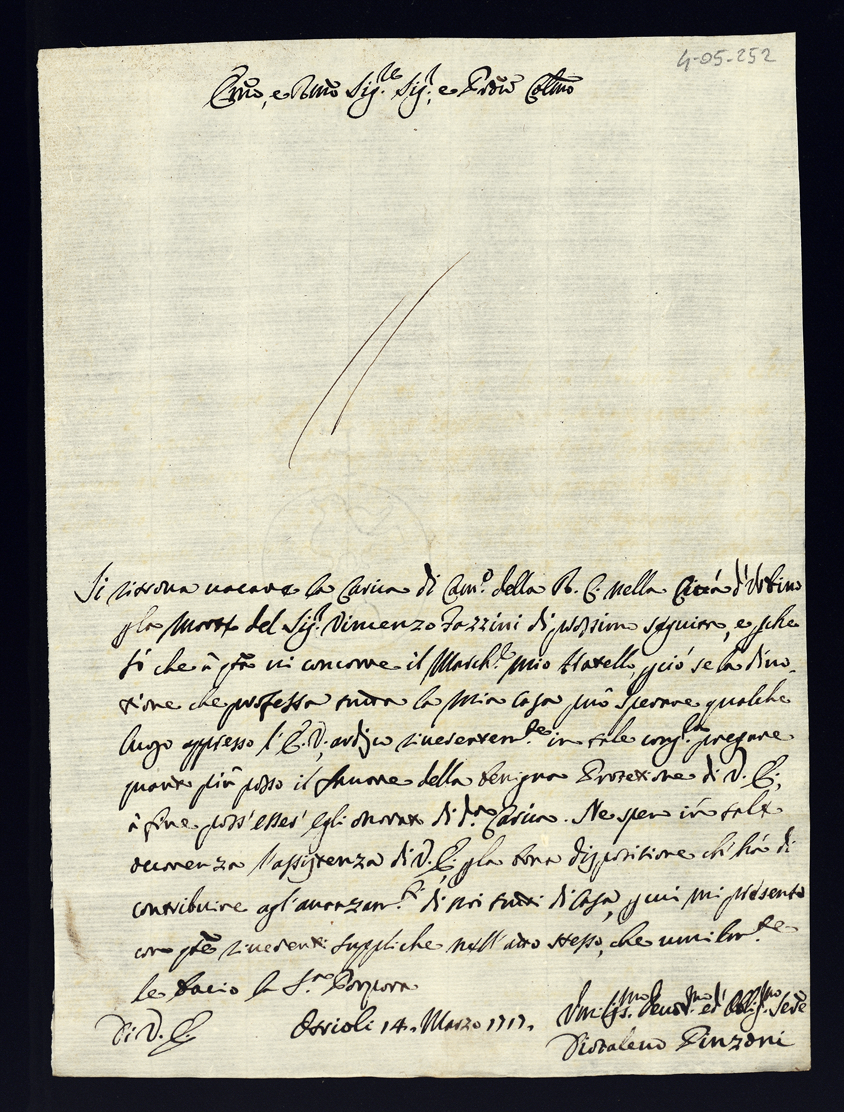 4-05-252
Emo, e Rmo Sig.re Sig.r, e Prõn Colmo
Si ritrova vacante la Carica di Cam.o della R. C. nella Città d'Urbino
p la Morte del Sig.r Vincenzo Fazzini di prossimo seguita, e pche
sò che à qta vi concorre il March.e mio fratello, pciò se la divo-
tione che professa tutta la mia Casa può sperare qualche
luogo appresso l'E. V., ardisco riverentem.te in tale cong.ra pregare
quanto più posso il favore della benigna Protetione di V. E.,
à fine poss'esser' egli onorato di d.a Carica. Ne spero in tale
occorrenza l'assistenza di V. E. p la bona dispositione ch'hà di
contribuire agl'avanzam.ti di noi tutti di Casa, p cui mi presento
con qte riverenti suppliche nell'atto stesso, che umilm.te
le bacio la S.ra Porpora
Di V. E. Ascoli 14. Marzo 1717. Um.mo Devot.mo ed' Oblig.mo Serre
Pinzoni